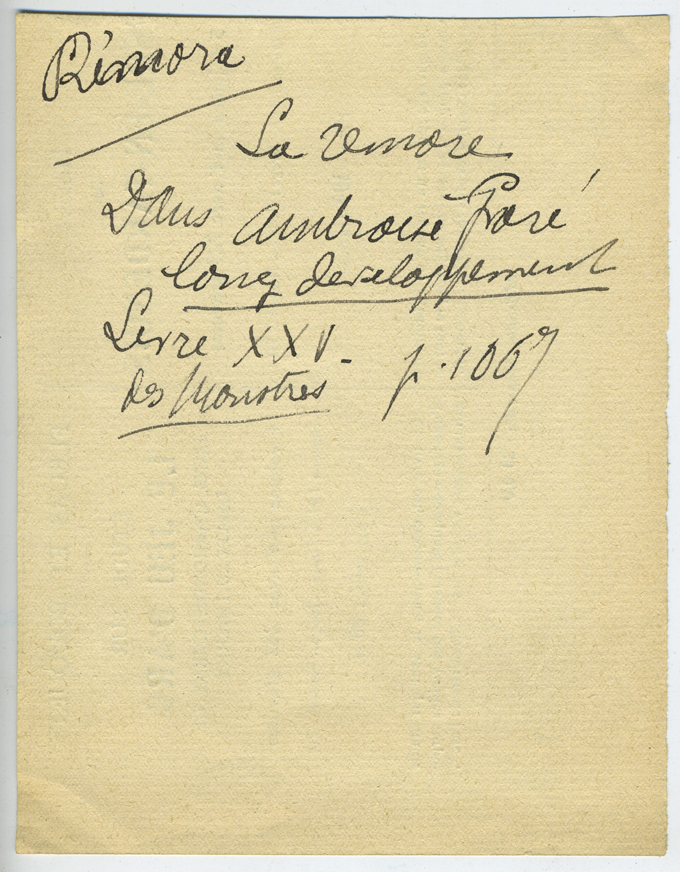 Rémora
La remore
Dans Ambroise Paré
long developpement
Livre XXV -
des Monstres
p. 1067